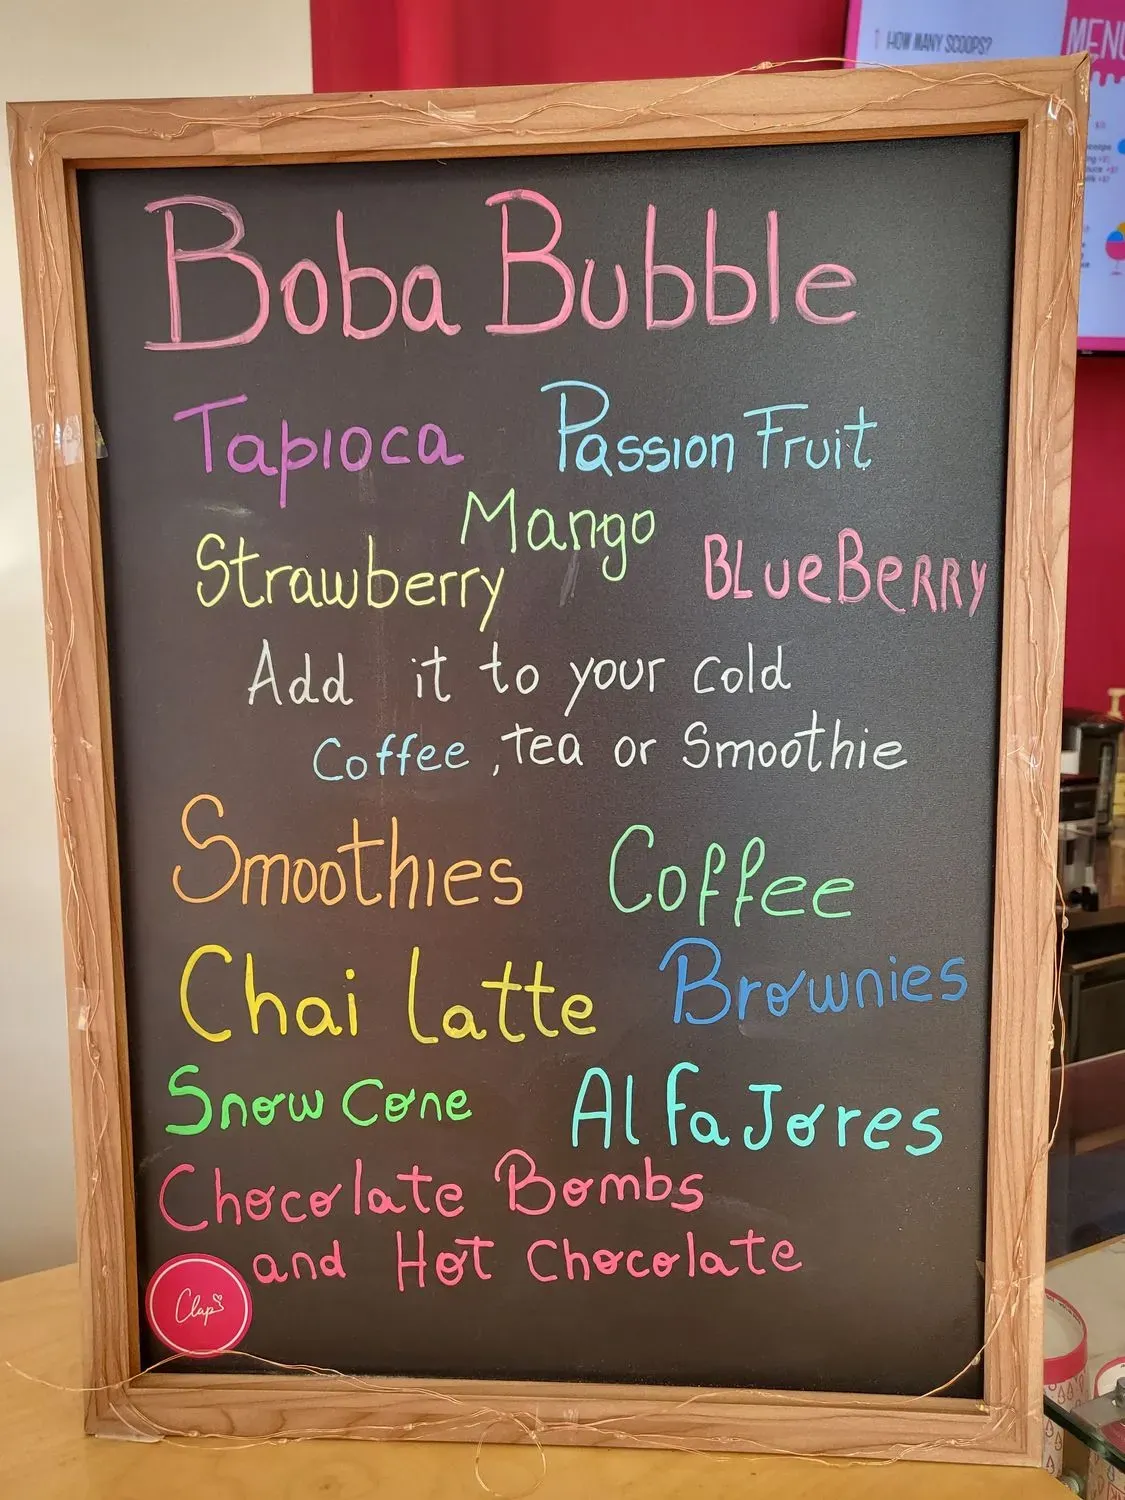 HOW MANY SCOOPS?
MENU
Boba Bubble
Tapioca Passion Fruit
Mango
Strawberry BLueBeRRY
Add it to your cold
Coffee, Tea or Smoothie
Smoothies Coffee
Chai latte Brownies
Snow Cone AlfaJores
Chocolate Bombs
and Hot Chocolate
Clap